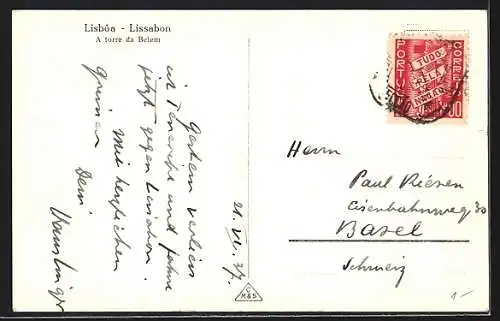 Lisbôa - Lissabon
A torre da Belem
21. VI. 37.
Gestern verliess
ich Teneriffa und fahre
jetzt gegen Lissabon.
Mit herzlichen
Grüssen
Dein
PORTUGAL
CORREIO
TUDO
PELA
NAÇÃO
Herrn
Paul Riesen
Eisenbahnweg 30
Basel
Schweiz
C
M&S
1-